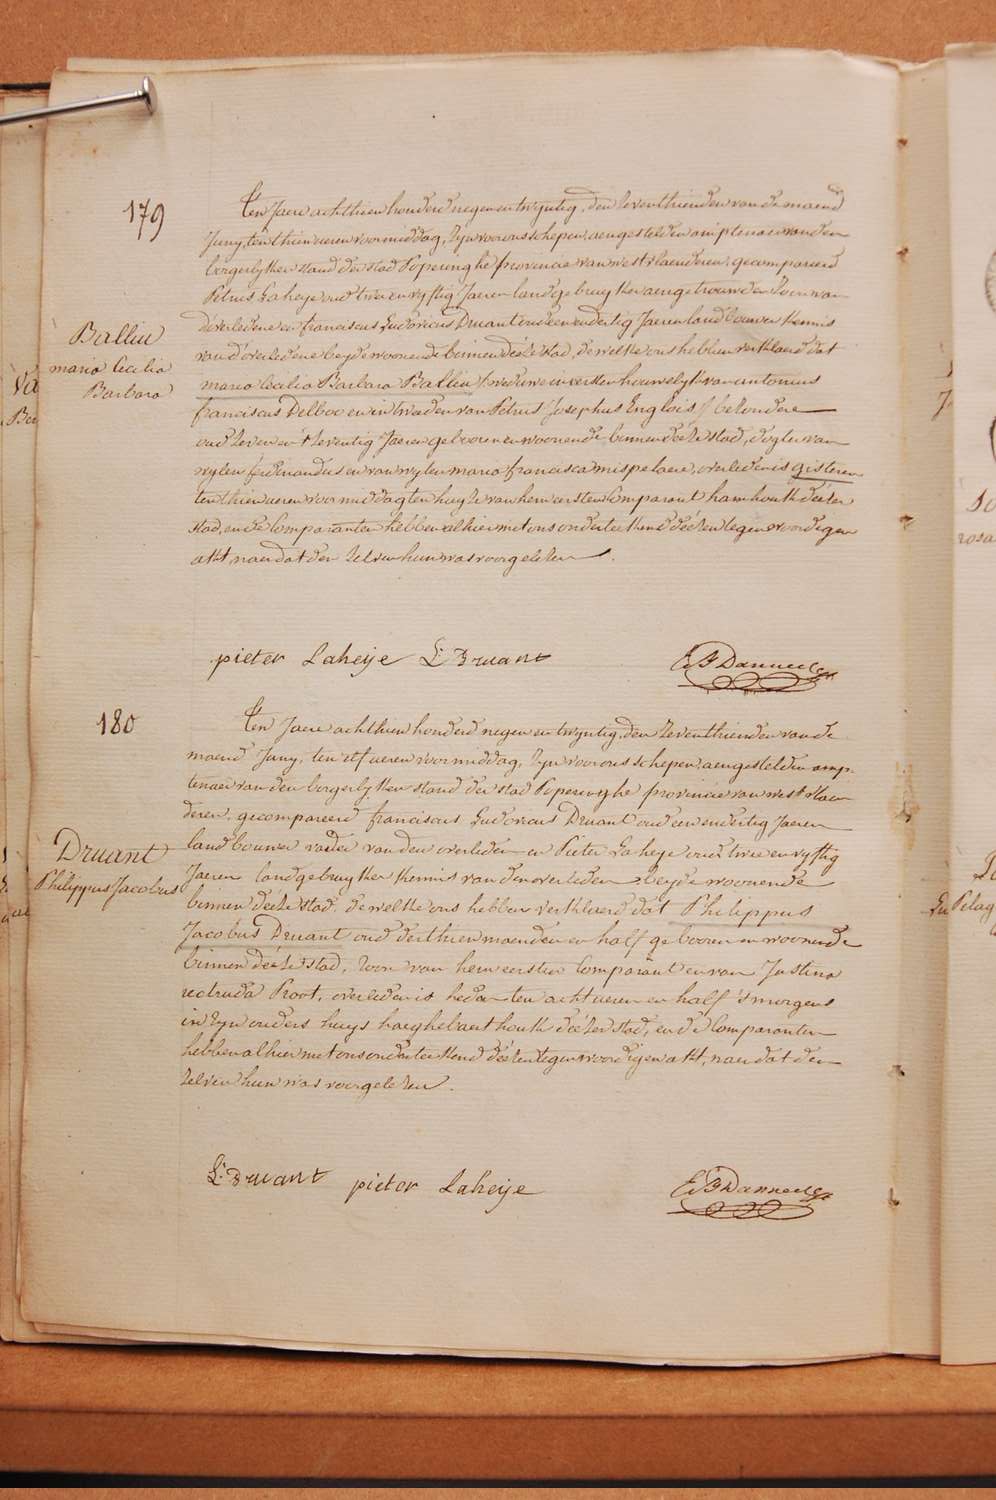 179
Ten Jaere achthien honderd negenentwyntig, den seventhienden van de maend
Juny, ten thien ueren voormiddag, zyn voor ons schepen, aengestelden amptenaer van den
borgerlyken stand der stad Poperinghe provincie van west vlaenderen, gecompareerd
Petrus Laheye oud twee en vyftig Jaeren landgebruyker aengetrouwden Zoon van
d'overledene en franciscus Ludovicus Druant een en dertig Jaeren landbouwer kennis
van d'overledene beyde woonende binnen deése stad, de welke ons hebben verklaerd dat
Balliu
maria Cecilia
Barbara
maria Cecilia Barbara Balliu weduwe in eersten houwelyk van antonius
franciscus Delboo en in tweeden van Petrus Josephus Englois
oud seven en t'seventig Jaeren geboren en woonende binnen deése stad, dogter van
wylen ferdinandus en van wylen maria francisca mispelaere, overleden is gisteren
ten thien ueren voormiddag ten huyse van hem eersten Comparant hamhoutk deéser
stad, en de Comparanten hebben alhier met ons onderteekend deésen tegenwoordigen
akt, naer dat den selven hun was voorgelesen.
pieter Laheije L: Druant
180
Ten Jaere achthien honderd negen en twyntig, den zeventhienden van de
maend Juny, ten elf ueren voormiddag, Zyn voor ons schepen, aengestelden amp-
tenaer van den borgerlyken stand der stad Poperinghe provincie van west vlaen
deren, gecompareerd franciscus Ludovicus Druant oud een en dertig Jaeren
Druant
Philippus Jacobus
landbouwer vader van den overleden en Pieter Laheye oud twee en vyftig
Jaeren landgebruyker kennis van den overleden beyde woonende
binnen deése stad, de welke ons hebben verklaerd dat Philippus
Jacobus Druant oud derthien maenden en half geboren en woonende
binnen deése stad, Zoon van hem eersten Comparant en van Justina
rectruda Proot, overleden is heden ten acht ueren en half 's morgens
in zyn ouders huys haeghebaert houtk deéser stad, en de Comparanten
hebben alhier met ons onderteekend deésen tegenwoordigen akt, naer dat den
zelven hun was voorgelesen.
L: Druant pieter Laheije